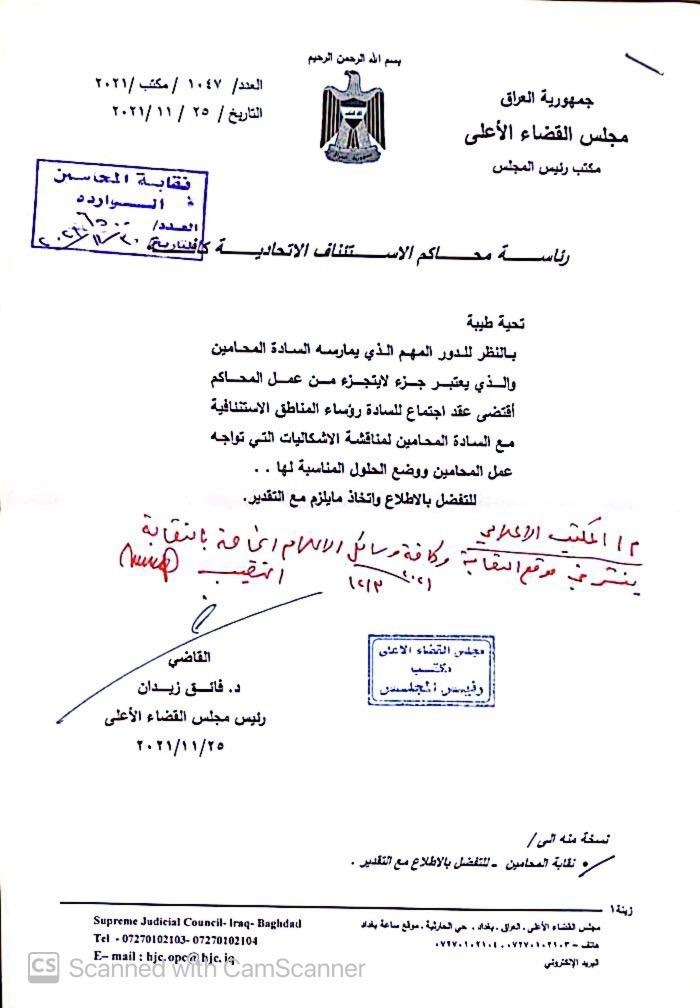 بسم الله الرحمن الرحيم
جمهورية العراق
مجلس القضاء الأعلى
مكتب رئيس المجلس
العدد/ ١٠٤٧ /مكتب /٢٠٢١
التاريخ / ٢٥ / ١١ /٢٠٢١
نقابة المحامين
الــواردة
العدد/
التاريخ
رئاسـة محـاكم الاسـتئناف الاتحاديـة كافـة
تحية طيبة
بالنظر للدور المهم الذي يمارسه السادة المحامين
والذي يعتبر جزء لايتجزء من عمل المحاكم
أقتضى عقد اجتماع للسادة رؤساء المناطق الاستئنافية
مع السادة المحامين لمناقشة الاشكاليات التي تواجه
عمل المحامين ووضع الحلول المناسبة لها . .
للتفضل بالاطلاع واتخاذ مايلزم مع التقدير.
م/ المكتب الاعلامي
ينشر في موقع النقابة وكافة وسائل الاعلام الخاصة بالنقابة
النقيب
١٢/٣
٢٠٢١
مجلس القضاء الاعلى
مكتب
رئيس المجلس
القاضي
د. فائق زيدان
رئيس مجلس القضاء الأعلى
٢٠٢١/١١/٢٥
نسخة منه الى/
• نقابة المحامين - للتفضل بالاطلاع مع التقدير .
زينة١
مجلس القضاء الأعلى . العراق . بغداد . حي الحارثية . موقع ساعة بغداد
هاتف – ٠٧٢٧٠١٠٢١٠٣ . ٠٧٢٧٠١٠٢١٠٤
البريد الإلكتروني
Supreme Judicial Council- Iraq- Baghdad
Tel - 07270102103- 07270102104
E– mail : hjc.opc@hjc.iq
CS Scanned with CamScanner